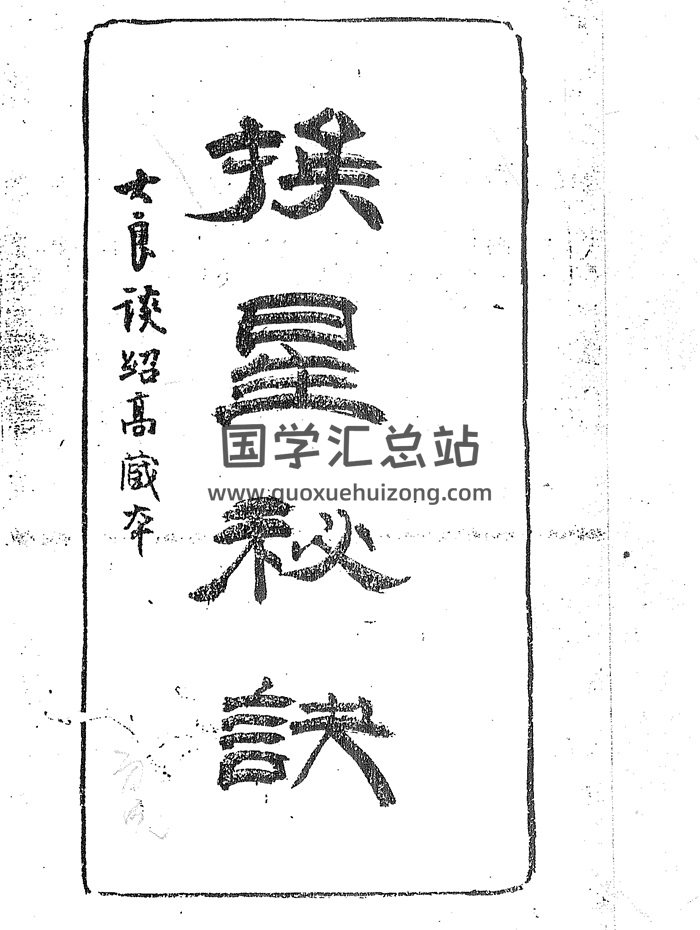 挨星秘訣
大良談紹高藏本
国学汇总站
www.guoxuehuizong.com